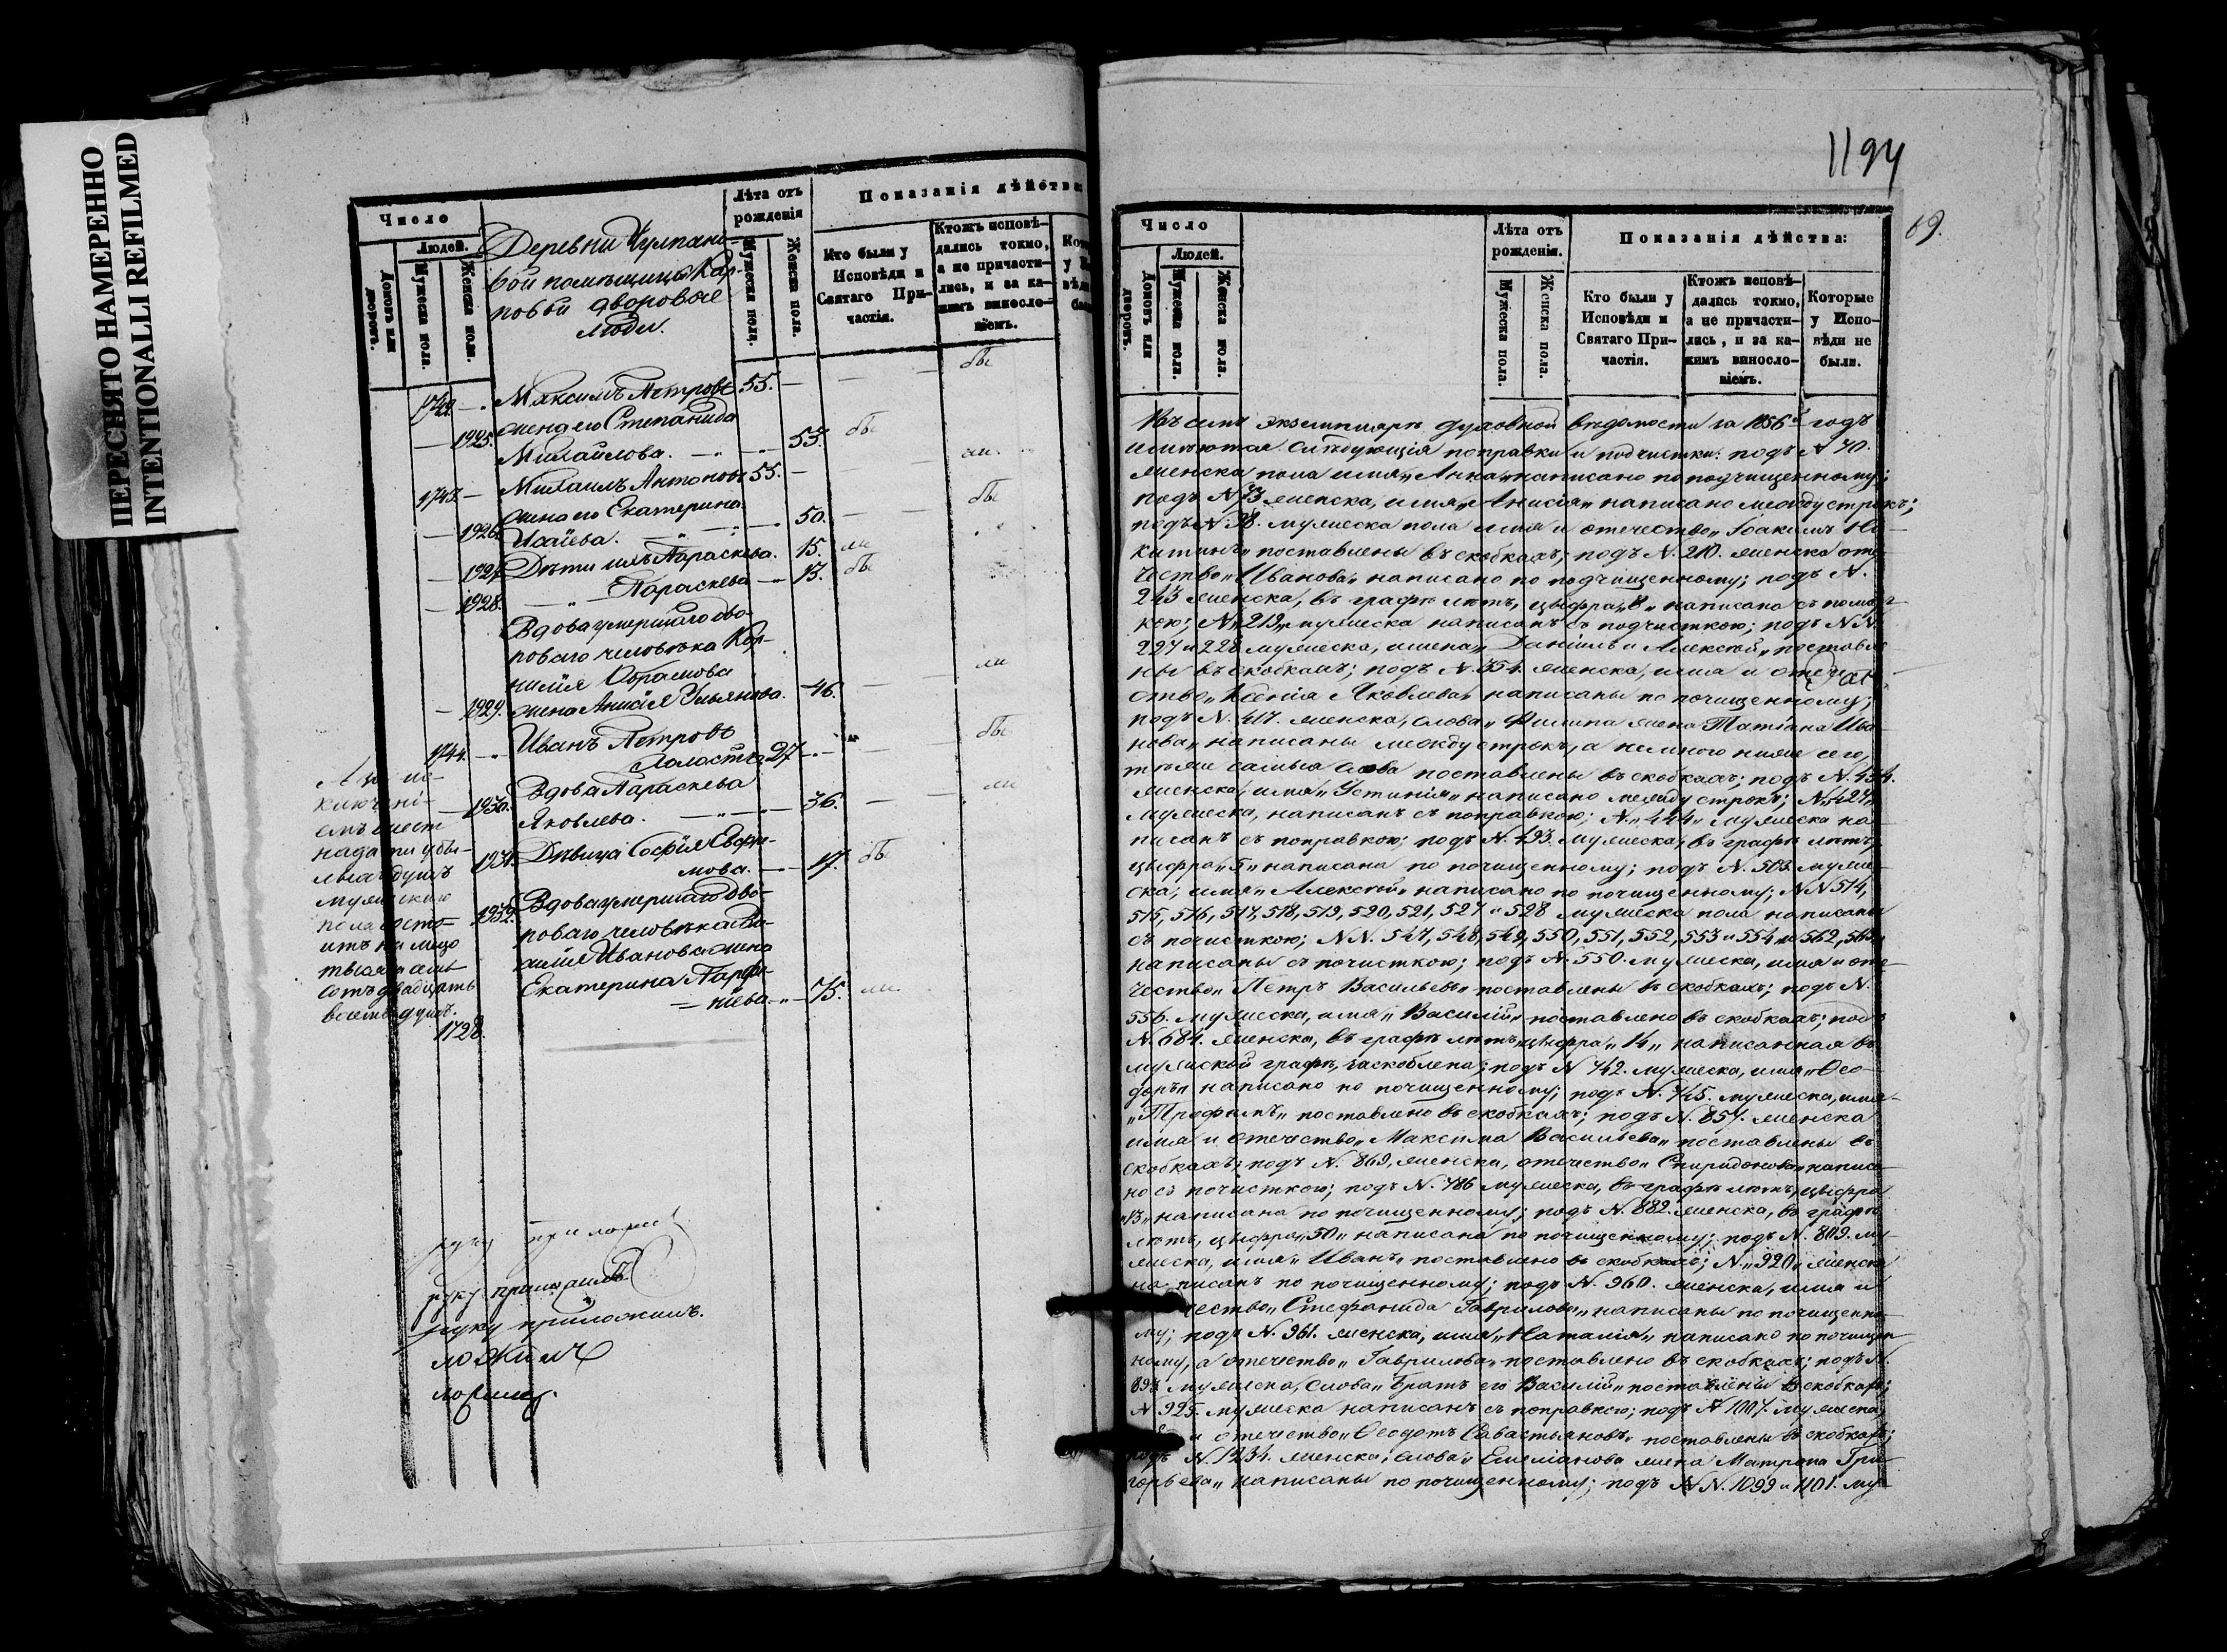 ПЕРЕСНЯТО НАМЕРЕННО
INTENTIONALLI REFILMED
Число
Людей.
Домовъ или дворовъ.
Мужеска пола.
Женска пола.
Деревни Чулпано-
вой помѣщицы Кар-
повой дворовые
люди.
Лѣта отъ
рожденія
Мужеска пола.
Женска пола.
Показанія дѣйства:
Кто были у
Исповѣди и
Святаго При-
частія.
Ктожъ исповѣ-
дались токмо,
а не причасти-
лись, и за ка-
кимъ винсло-
віемъ.
1742 — Максимъ Петровъ 55. —
жена его Степанида
— 1925. Михайлова. — „ — 53.
1743 — Михаилъ Антоновъ 55. —
жена его Екатерина
— 1926 Исаіева. — „ — 50.
— 1927 Дѣти ихъ Параскева. 15.
— 1928. — „ — Параскева — 13.
Вдова умершаго дво-
роваго человѣка Кор-
нилія Абрамова
— 1929. жена Анисія Ульянова. 46.
1744. — Иванъ Петровъ
Холостъ 27 —
Вдова Параскева
— 1930. Яковлева. — „ — 36.
1931. Дѣвица Софія Евфи-
мова. — 17.
1932. Вдова умершаго дво-
роваго человѣка Ва-
силія Иванова жена
Екатерина Парфе-
— нiева — „ — 75.
А за ис-
ключені-
емъ шест
надцати убы-
лыхъ душъ
мужескаго
пола состо-
итъ на лицо
тысяча семь
сотъ двадцать
восемь душъ.
1728.
руку приложилъ
руку приложилъ
руку приложилъ.
ложилъ
ложилъ.
1194
69.
Число
Людей.
Домовъ или дворовъ.
Мужеска пола.
Женска пола.
Лѣта отъ
рожденія.
Мужеска пола.
Женска пола.
Показанія дѣйства:
Кто были у
Исповѣди и
Святаго При-
частія.
Ктожъ исповѣ-
дались токмо,
а не причасти-
лись, и за ка-
кимъ винсло-
віемъ.
Которые
у Испо-
вѣди не
были.
Въ семъ экземплярѣ духовной вѣдомости за 1856й годъ
имѣются слѣдующія поправки и подчистки: подъ N 70.
женска пола имя „Анна„ написано по подчищенному;
подъ N 73 женска, имя „Анисія„ написано между строкъ;
подъ N 98. мужеска пола имя и отечество „Іоакимъ Ни-
китинъ„ поставлены въ скобкахъ; подъ N. 210. женска оте-
чество „Иванова„ написано по подчищенному; подъ N.
243 женска, въ графѣ лѣтъ, цыфра „8„ написана съ помар-
кою; N „219„ мужеска написанъ съ подчисткою; подъ NN
227 и 228 мужеска, имена „Даніилъ и Алексѣй„ поставле-
ны въ скобкахъ; подъ N. 354. женска, имя и отече-
ство „Ксенія Яковлева„ написаны по почищенному;
подъ N. 417. женска, слова „Филипа жена Татіана Ива-
нова„ написаны между строкъ, а немного ниже сего,
тѣже самыя слова поставлены въ скобкахъ; подъ N. 434.
женска, имя „Устинія„ написано между строкъ; N „427„
мужеска, написанъ съ поправкою; N „444„ мужеска на
писанъ съ поправкою; подъ N. 493. мужеска, въ графѣ лѣтъ,
цыфра „5„ написана по почищенному; подъ N. 503. муже-
ска, имя „Алексѣй„ написано по почищенному; NN 514,
515, 516, 517, 518, 519, 520, 521, 527 и 528 мужеска пола написаны
съ почисткою; NN. 547, 548, 549, 550, 551, 552, 553 и 554 и 562, 563
написаны съ почисткою; подъ N. 550. мужеска, имя и оте-
чество „Петръ Васильевъ„ поставлены въ скобкахъ; подъ N.
556. мужеска, имя „Василій„ поставлено въ скобкахъ; подъ
N. 684. женска, въ графѣ лѣтъ цыфра „14„ написанная въ
мужеской графѣ, заскоблена; подъ N 742. мужеска, имя „Ѳео-
доръ„ написано по почищенному; подъ N. 745. мужеска, имя
„Трофимъ„ поставлено въ скобкахъ; подъ N. 857. женска
имя и отечество „Максима Васильева„ поставлены въ
скобкахъ; подъ N. 869, женска, отечество „Спиридонова„ написа-
но съ почисткою; подъ N. 786 мужеска, въ графѣ лѣтъ, цыфра
„13„ написана по почищенному; подъ N. 882. женска, въ графѣ
лѣтъ, цыфра „50„ написана по почищенному; подъ N. 809. му-
жеска, имя „Иванъ„ поставлено въ скобкахъ; N „920„ женска
написанъ по почищенному; подъ N. 960. женска, имя и
чество „Стефанида Гаврилова„ написаны по почищенно-
му; подъ N. 961. женска, имя „Наталія„ написано по почищен-
ному, а отечество „Гаврилова„ поставлено въ скобкахъ; подъ N.
893 мужеска, слова „братъ его Василій„ поставлены въ скобкахъ;
N 925. мужеска написанъ съ поправкою; подъ N 1007. мужеска,
и отечество „Ѳеодотъ Савастьяновъ„ поставлены въ скобкахъ;
подъ N. 1234. женска, слова „Емеліанова жена Матрона Гри-
горьева„ написаны по почищенному; подъ NN. 1099 и 1101. му-